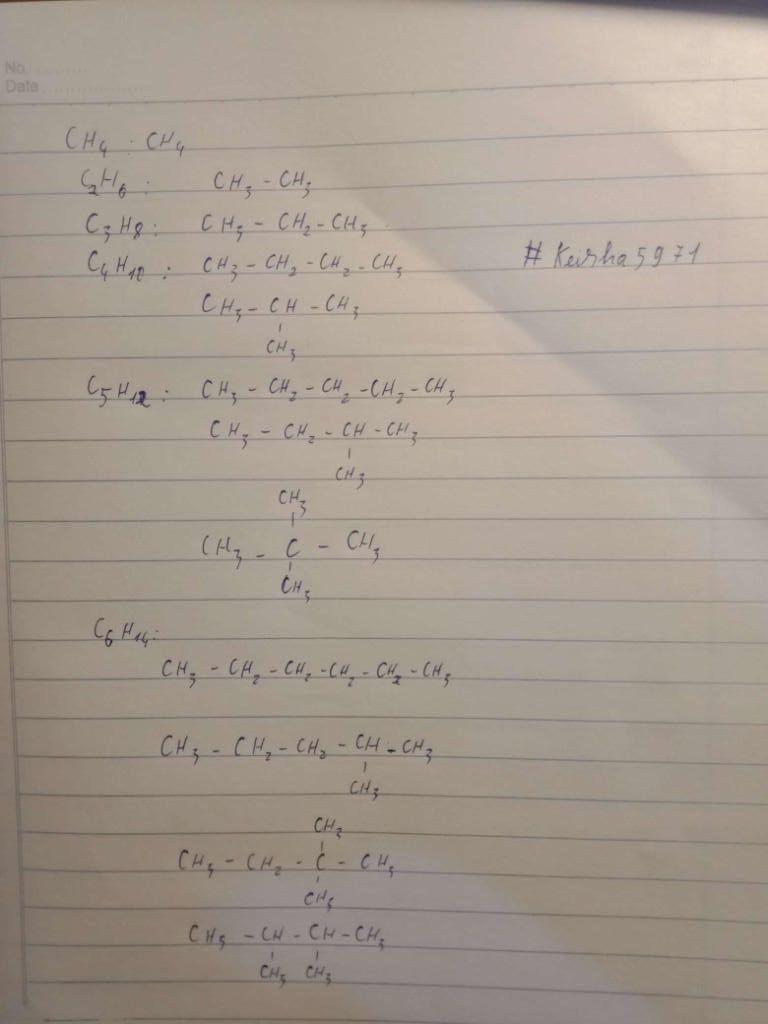 No
Data
CH₄ : CH₄
C₂H₆ : CH₃ - CH₃
C₃H₈ : CH₃ - CH₂ - CH₃
C₄H₁₀ : CH₃ - CH₂ - CH₂ - CH₃ # Keisha5971
CH₃ - CH - CH₃
CH₃
C₅H₁₂ : CH₃ - CH₂ - CH₂ - CH₂ - CH₃
CH₃ - CH₂ - CH - CH₃
CH₃
CH₃
CH₃ - C - CH₃
CH₃
C₆H₁₄ :
CH₃ - CH₂ - CH₂ - CH₂ - CH₂ - CH₃
CH₃ - CH₂ - CH₂ - CH - CH₃
CH₃
CH₃
CH₃ - CH₂ - C - CH₃
CH₃
CH₃ - CH - CH - CH₃
CH₃ CH₃